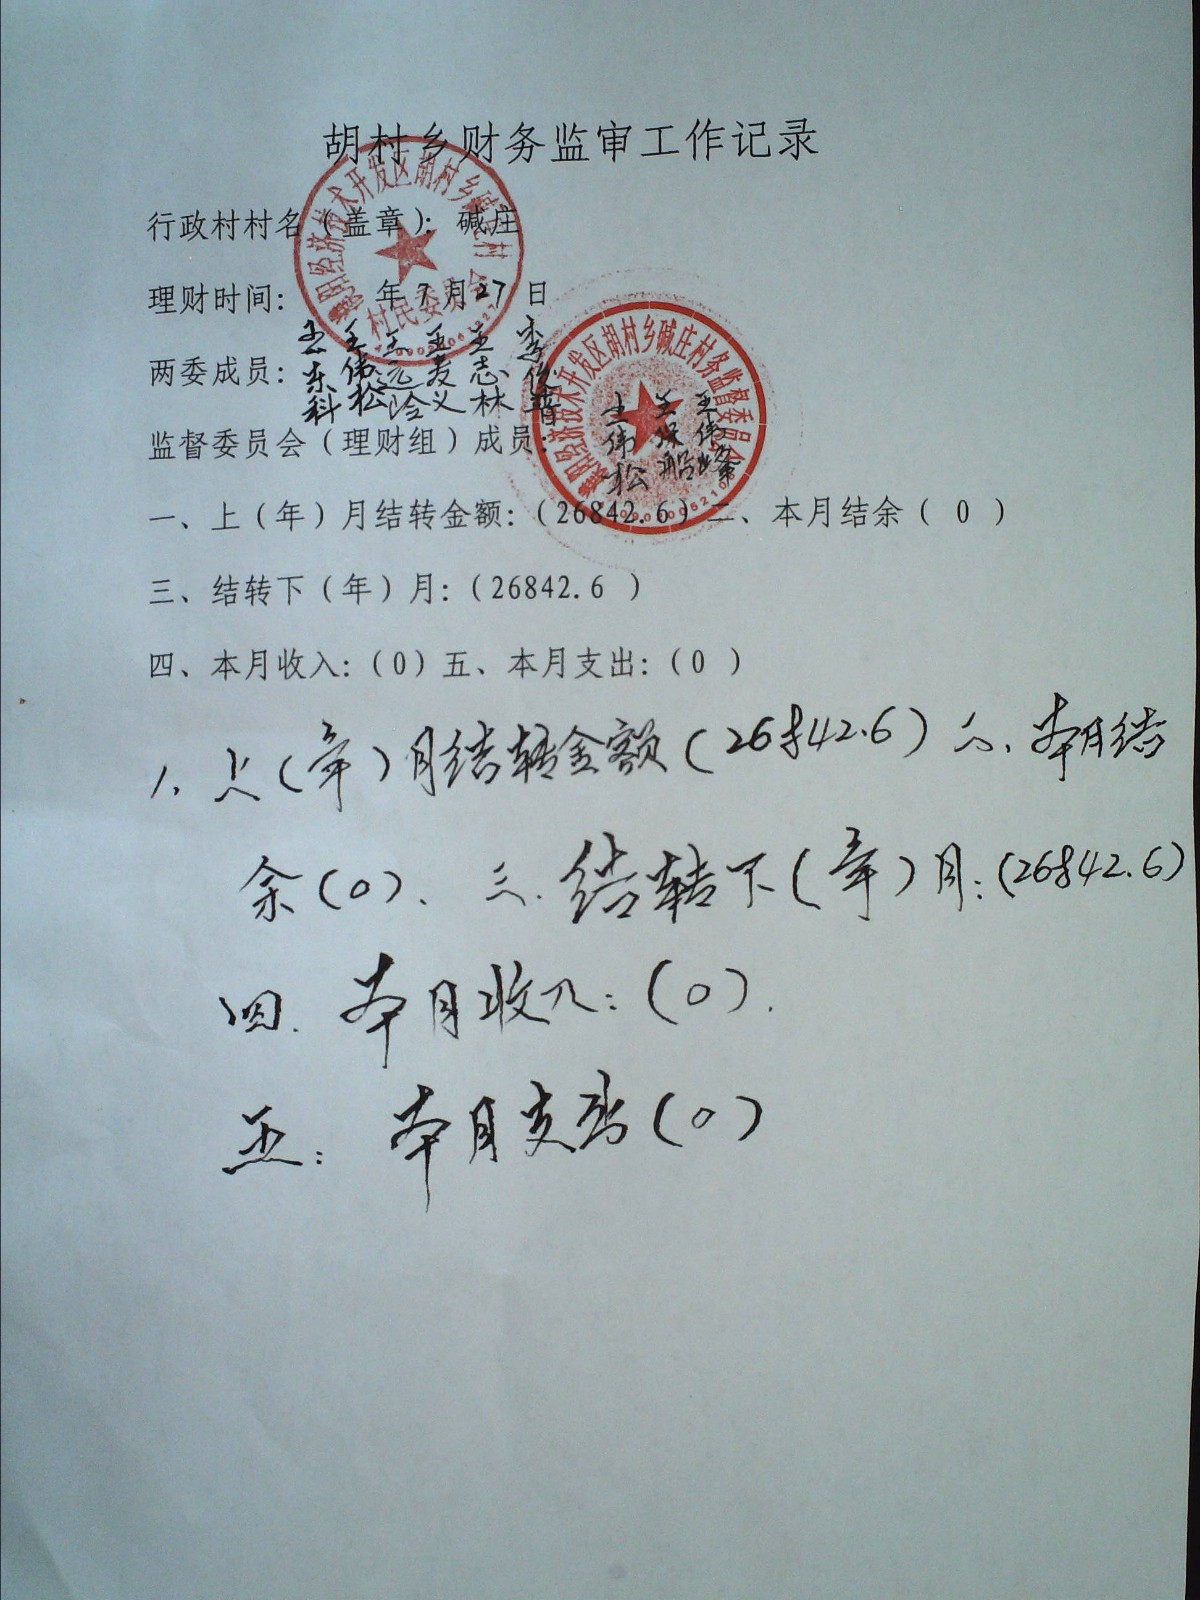 胡村乡财务监审工作记录
行政村村名（盖章）：碱庄
理财时间： 年7月27日
两委成员：王东科 王伟松 王远玲 王麦义 王志林 李俊普
监督委员会（理财组）成员：王伟松 王保船 王伟峰
一、上（年）月结转金额：（26842.6）二、本月结余（ 0 ）
三、结转下（年）月：（26842.6 ）
四、本月收入：（0）五、本月支出：（0 ）
一、上（年）月结转金额（26842.6）二、本月结
余（0）、三、结转下（年）月：（26842.6）
四、本月收入：（0）.
五：本月支出（0）
濮阳经济技术开发区胡村乡碱庄村
村民委员会
濮阳经济技术开发区胡村乡碱庄村务监督委员会